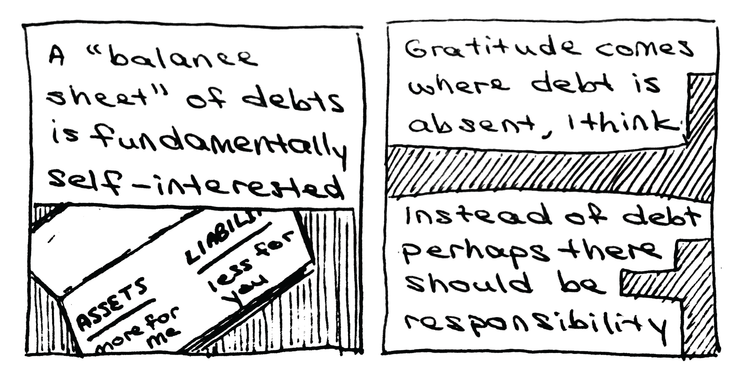 A "balance
sheet" of debts
is fundamentally
self-interested
ASSETS
more for
me
LIABILI
less for
you
Gratitude comes
where debt is
absent, I think.
Instead of debt
perhaps there
should be
responsibility